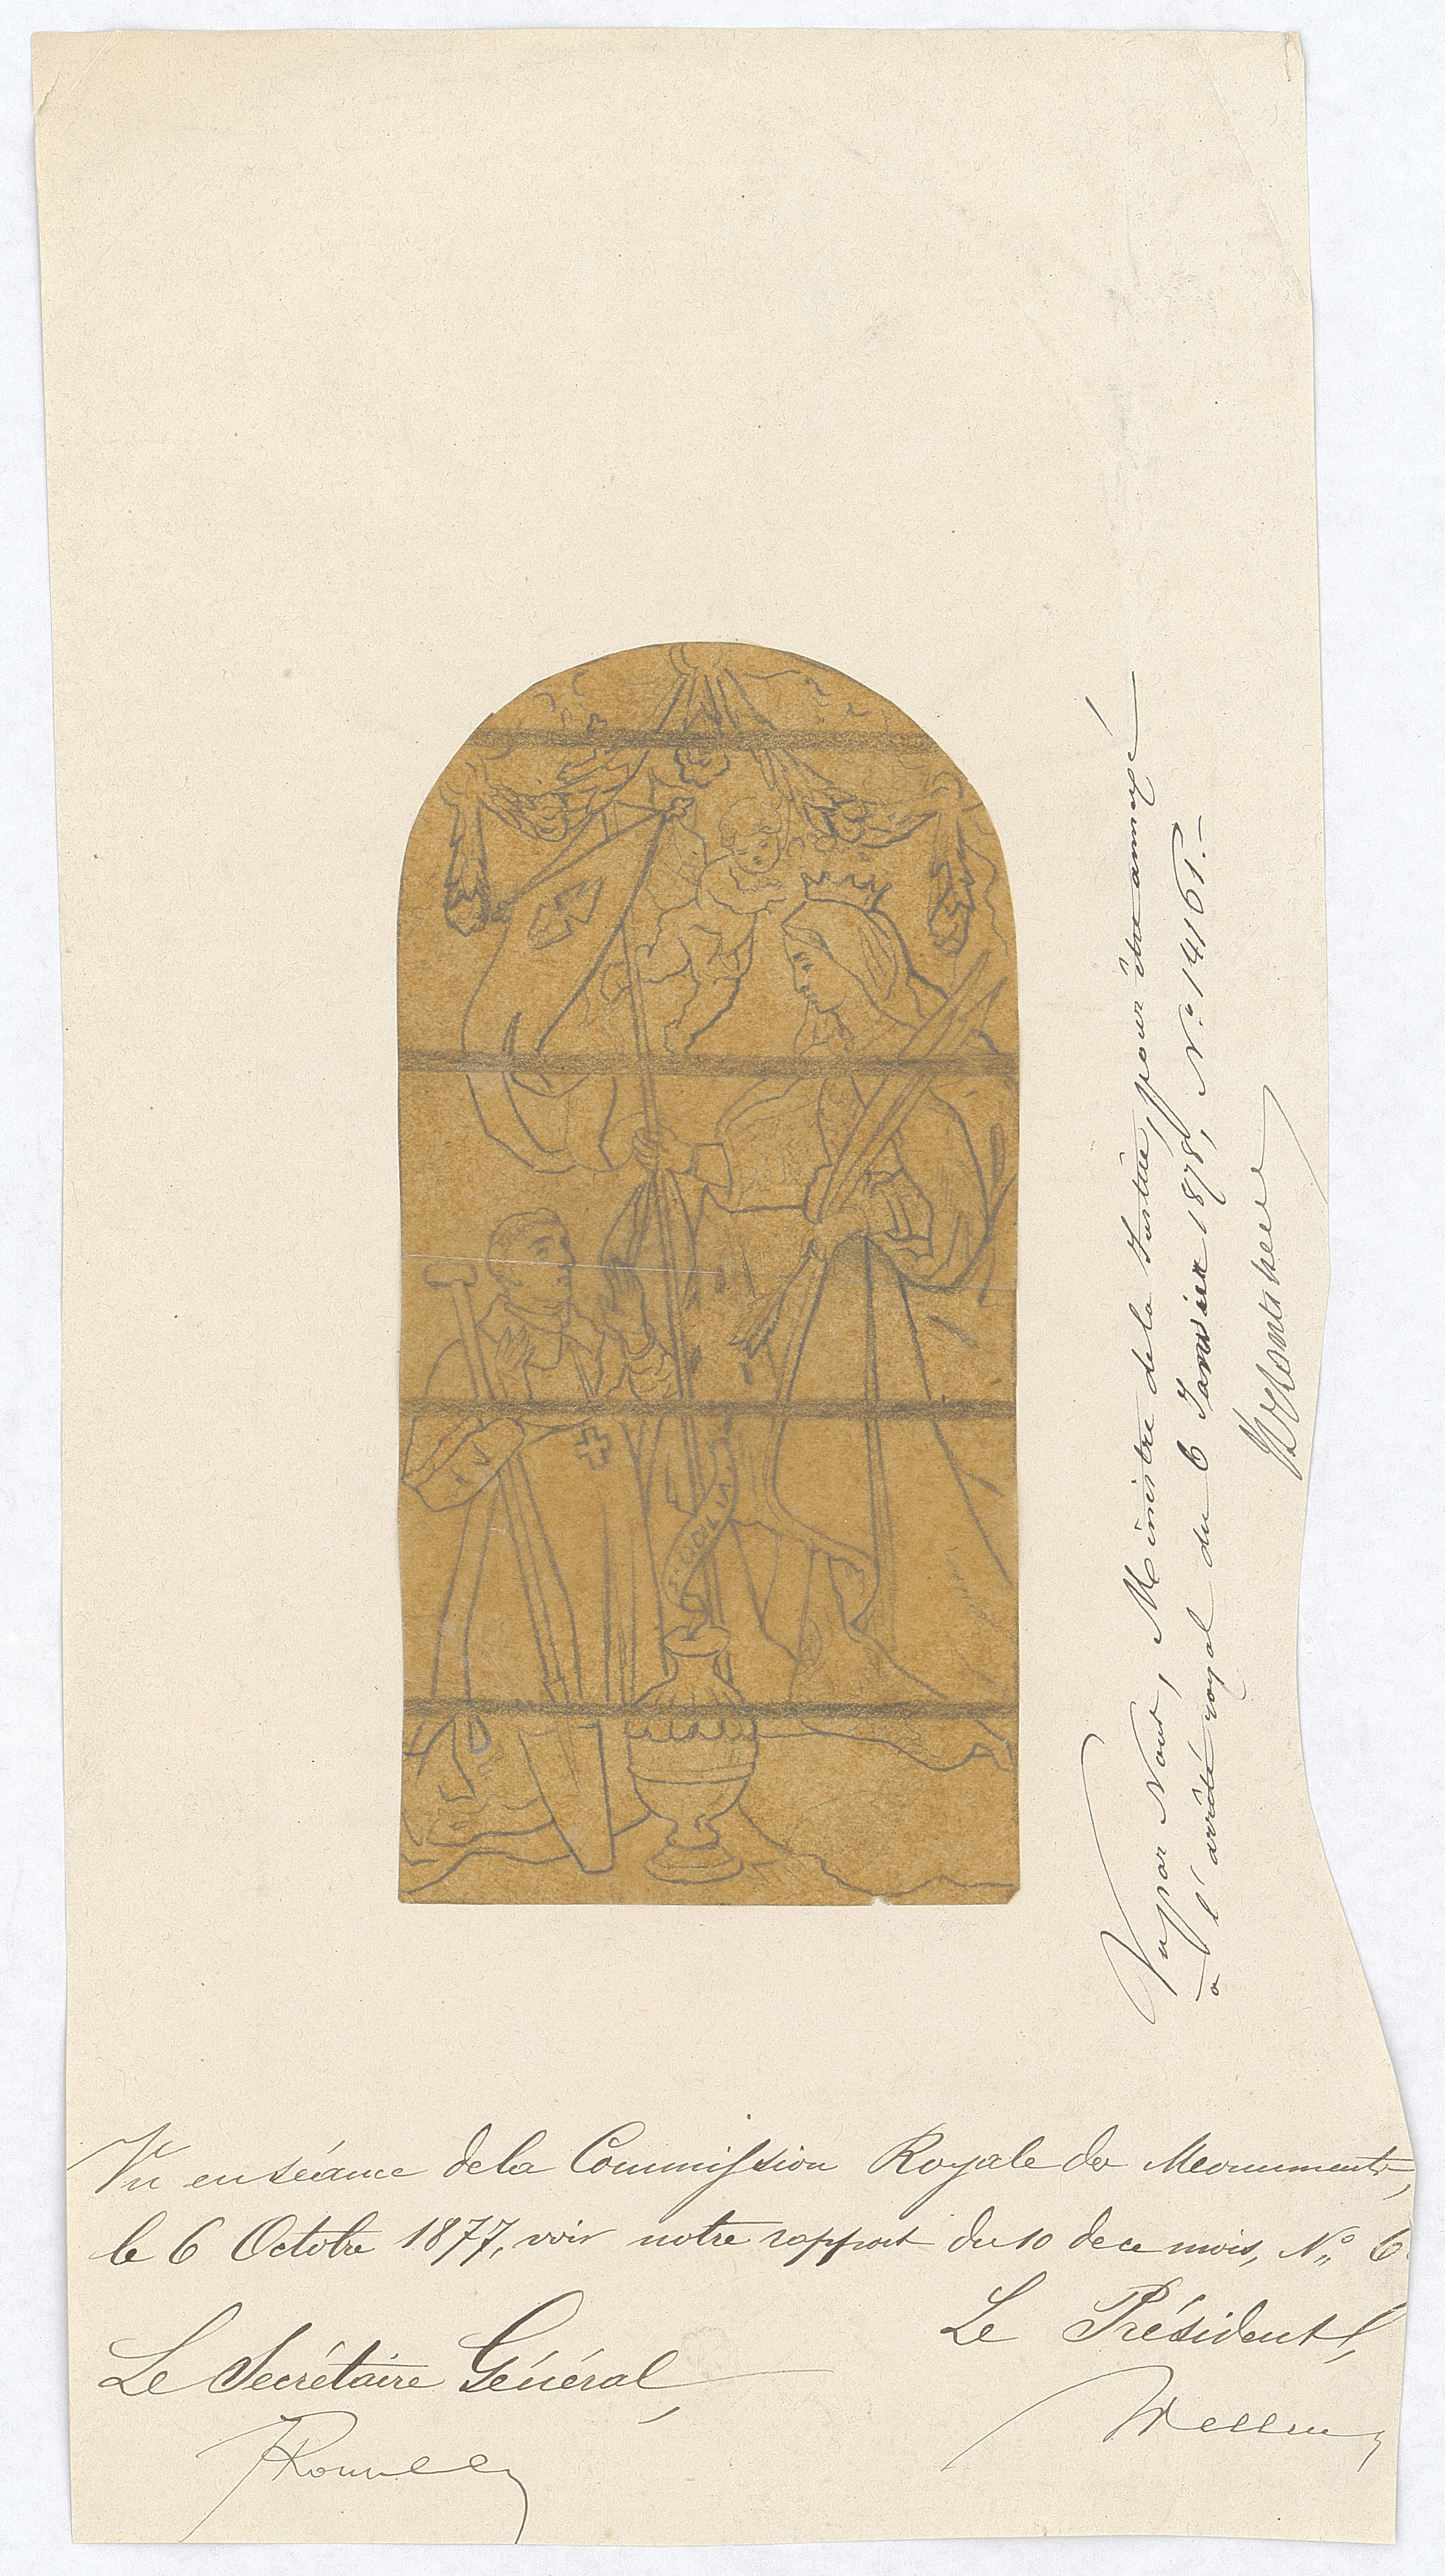 Vu par Nous, Ministre de la Justice, pour être annexé
à l'arrêté royal du 6 Janvier 1878, N.º 14161.-
Vu en séance de la Commission Royale des Monuments,
le 6 Octobre 1877, voir notre rapport du 10 de ce mois, Nº 6
Le Président,
Le Secrétaire Général,
Wellens
JRousseau